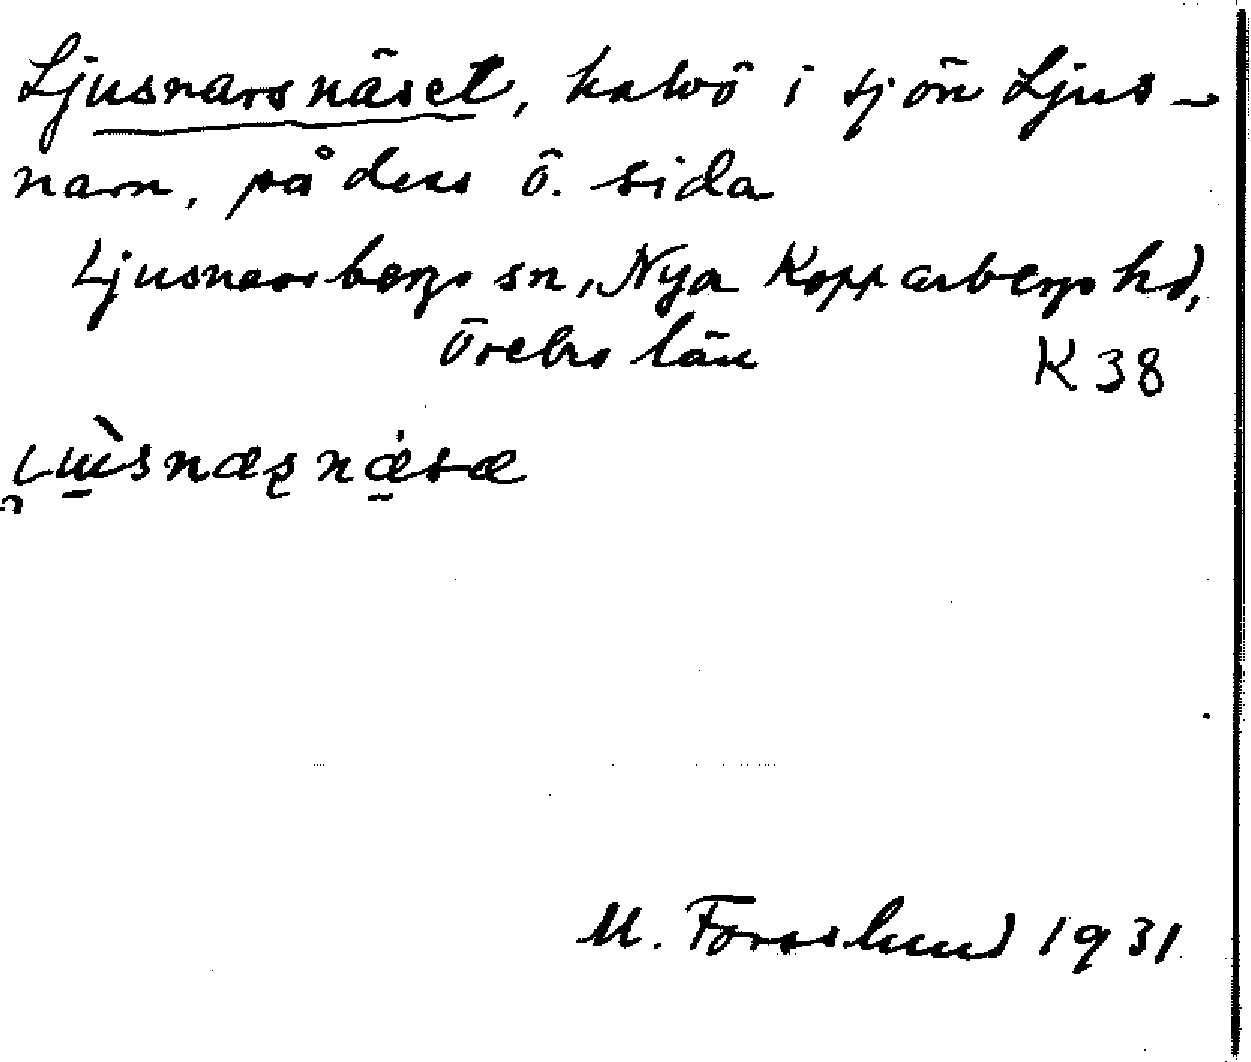 Ljusnarsnäset, halvö i sjön Ljus-
narn, på dess ö. sida
Ljusnarsbergs sn, Nya Kopparbergs hd,
Örebro län
K 38
M. Forsslund 1931